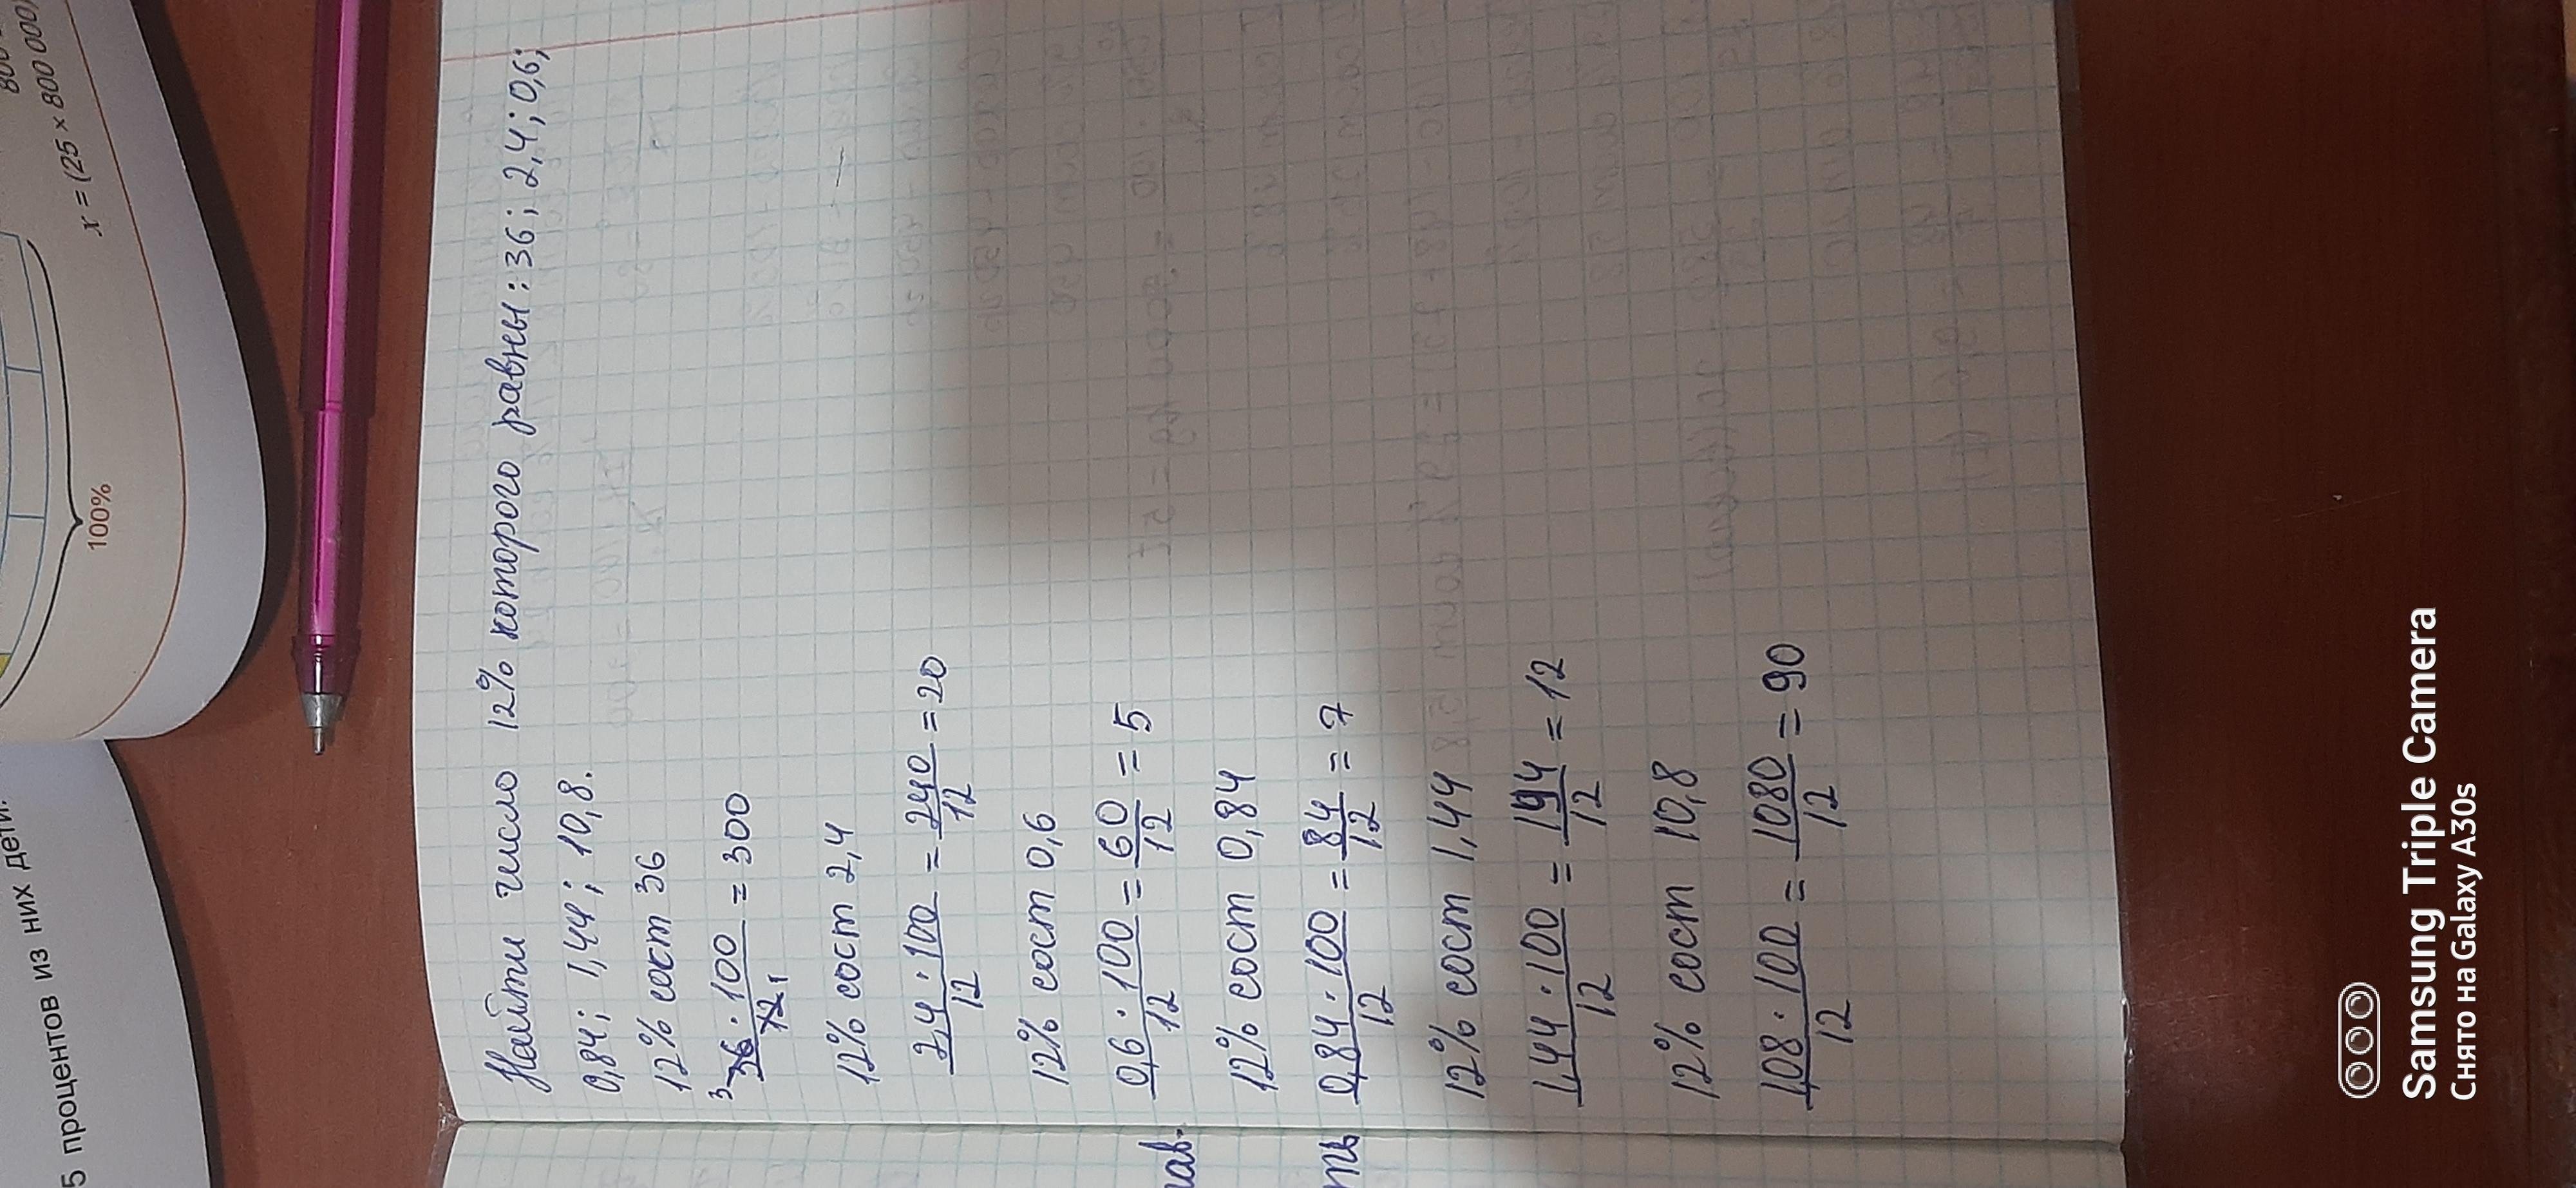 800
x = (25 × 800 000)
100%
5 процентов из них дети.
Найти число 12% которого равны : 36 ; 2,4 ; 0,6 ;
0,84 ; 1,44 ; 10,8.
12% сост 36
3 36 · 100 / 12 1 = 300
12% сост 2,4
2,4 · 100 / 12 = 240 / 12 = 20
12% сост 0,6
0,6 · 100 / 12 = 60 / 12 = 5
12% сост 0,84
0,84 · 100 / 12 = 84 / 12 = 7
12% сост 1,44
1,44 · 100 / 12 = 144 / 12 = 12
12% сост 10,8
1,08 · 100 / 12 = 1080 / 12 = 90
ть
Samsung Triple Camera
Снято на Galaxy A30s